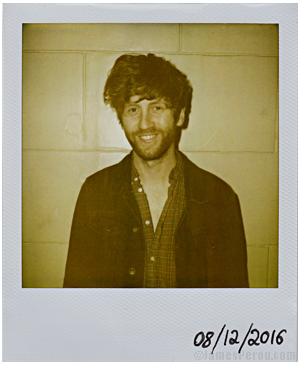 08/12/2016
©JamesPerou.com